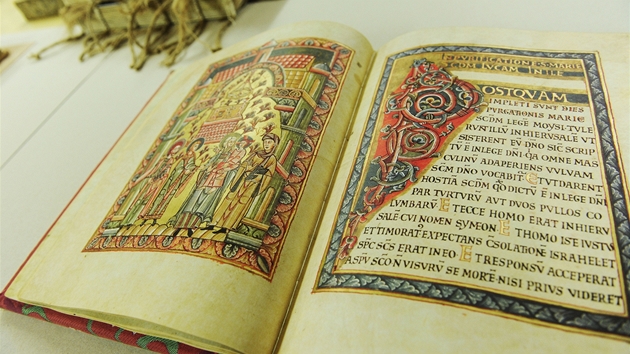 IN PVRIFICATIONE S MARIE
POSTQVAM
IMPLETI SVNT DIES
PVRGATIONIS MARIE
SCDM LEGE MOYSI TVLE
RVNT ILLV IN HIERVSALE VT
SISTERENT EV DNO SIC SCRIP
TV E IN LEGE DNI QA OMNE MAS
CVLINV ADAPERIENS VVLVAM
SCM DNO VOCABIT ET VT DARENT
HOSTIA SCDM QD DICTV E IN LEGE DNI
PAR TVRTVRV AVT DVOS PVLLOS CO
LVMBARV ET ECCE HOMO ERAT IN HIERV
SALE CVI NOMEN SYMEON ET HOMO ISTE IVSTVS
ET TIMORAT EXPECTANS CSOLATIONE ISRAHEL ET
SPC SCS ERAT IN EO ET RESPONSV ACCEPERAT
A SPV SCO N VISVRV SE MORTE NISI PRIVS VIDERET